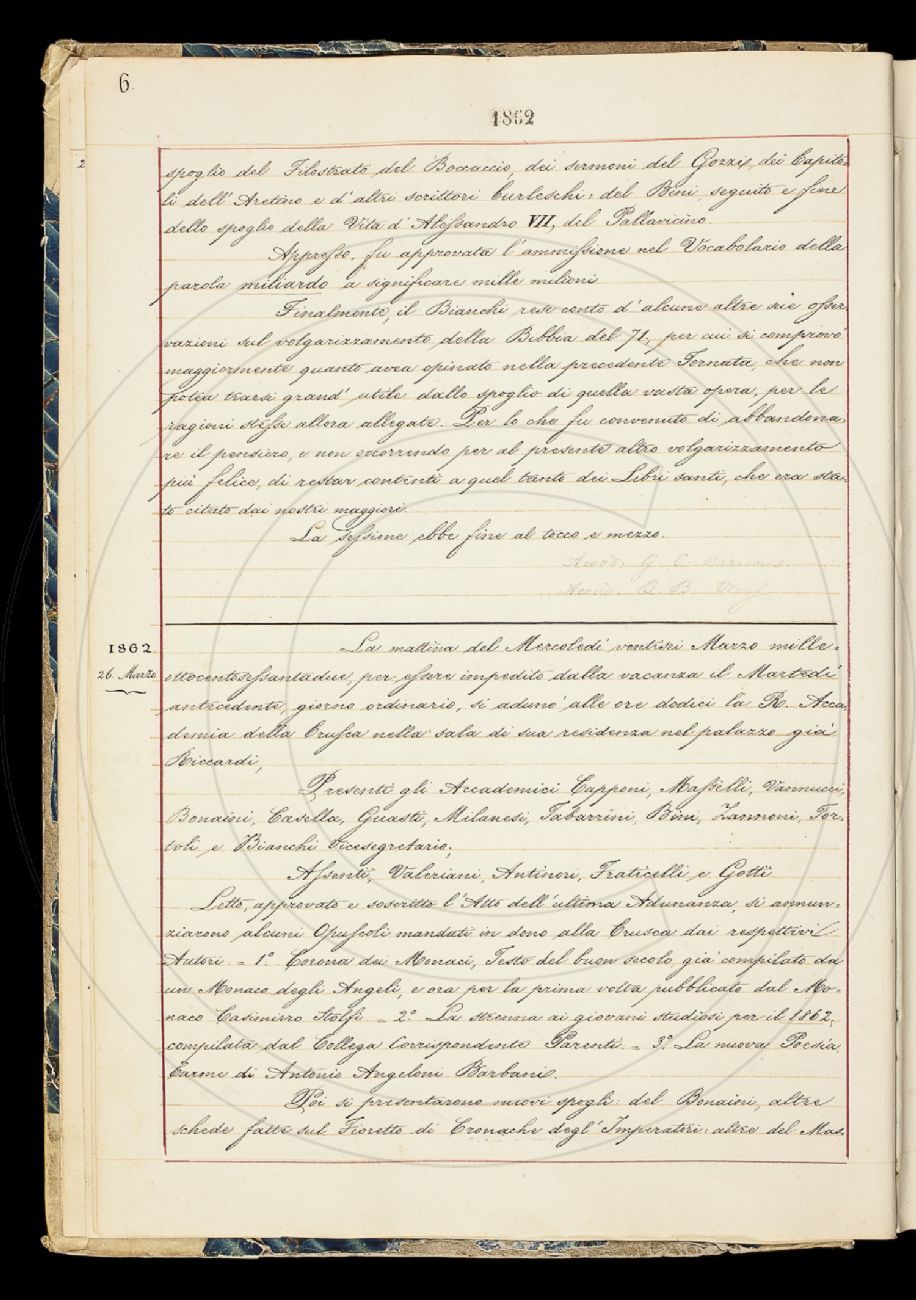 6.
1862
2
spoglio del Filostrato del Boccaccio, dei sermoni del Gozzi, dei Capito-
li dell' Aretino e d' altri scrittori burleschi: del Bini, seguito e fine
dello spoglio della Vita d' Alessandro VII, del Pallavicino.
Appresso, fu approvata l' ammissione nel Vocabolario della
parola miliardo a significare mille milioni
Finalmente, il Bianchi rese conto d' alcune altre sue osser-
vazioni sul volgarizzamento della Bibbia del 71, per cui si comprovò
maggiormente quanto avea opinato nella precedente Tornata, che non
potea trarsi grand' utile dallo spoglio di quella vasta opera, per le
ragioni stesse allora allegate. Per lo che fu convenuto di abbandona-
re il pensiero, e non occorrendo per al presente altro volgarizzamento
più felice, di restar contenti a quel tanto dei Libri santi, che era sta-
to citato dai nostri maggiori.
La sessione ebbe fine al tocco e mezzo.
Accad: G. C.
Accad. B. B.
1862.
26. Marzo
La mattina del Mercoledì ventisei Marzo mille-
ottocentosessantadue, per essere impedito dalla vacanza il Martedì
antecedente, giorno ordinario, si adunò alle ore dodici la R. Acca-
demia della Crusca nella sala di sua residenza nel palazzo già
Riccardi,
Presenti gli Accademici Capponi, Masselli, Vannucci,
Bonaini, Casella, Guasti, Milanesi, Tabarrini, Bini, Zannoni, Tor-
toli e Bianchi Vicesegretario;
Assenti, Valeriani, Antinori, Fraticelli e Gotti
Letto, approvato e soscritto l' Atto dell' ultima Adunanza, si annun-
ziarono alcuni Opuscoli mandati in dono alla Crusca dai respettivi
Autori: = 1.° Corona dei Monaci, Testo del buon secolo già compilato da
un Monaco degli Angeli, e ora per la prima volta pubblicato dal Mo-
naco Casimirro Stolfi = 2.° La strenna ai giovani studiosi per il 1862,
compilata dal Collega Corrispondente Parenti. = 3.° La nuova Poesia
Carme di Antonio Angeloni Barbani.
Poi si presentarono nuovi spogli: del Bonaini, altre
schede fatte sul Fioretto di Cronache degl' Imperatori: altre del Mas-